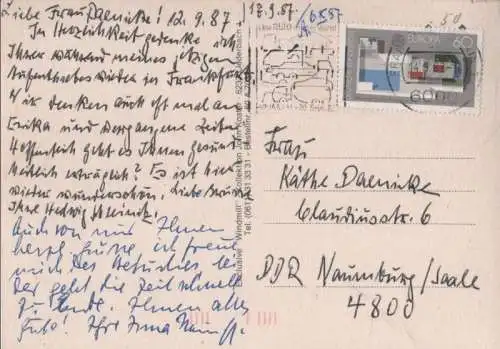 Liebe Frau Daenicke! 12.9.87.
In Herzlichkeit gedenke ich
Ihrer während meines jetzigen
Aufenthaltes wieder in Frankfurt
Wir denken auch oft mal an
Erika und vergangene Zeiten
Hoffentlich geht es Ihnen gesund-
heitlich erträglich? Es ist hier
wieder wunderschön. Liebe Grüße
Ihre Hedwig
Auch von mir Ihnen
herzl. Grüße, ich freue
mich des Besuches
der geht die Zeit schnell
zu Ende. Ihnen alles
Gute! Ihre Irma
Exclusive "Windmill" Collection
17.9.87.
50
EUROPA 60
6000
Frau
Käthe Daenicke
Claudiusstr. 6
DDR Naumburg/Saale
4800